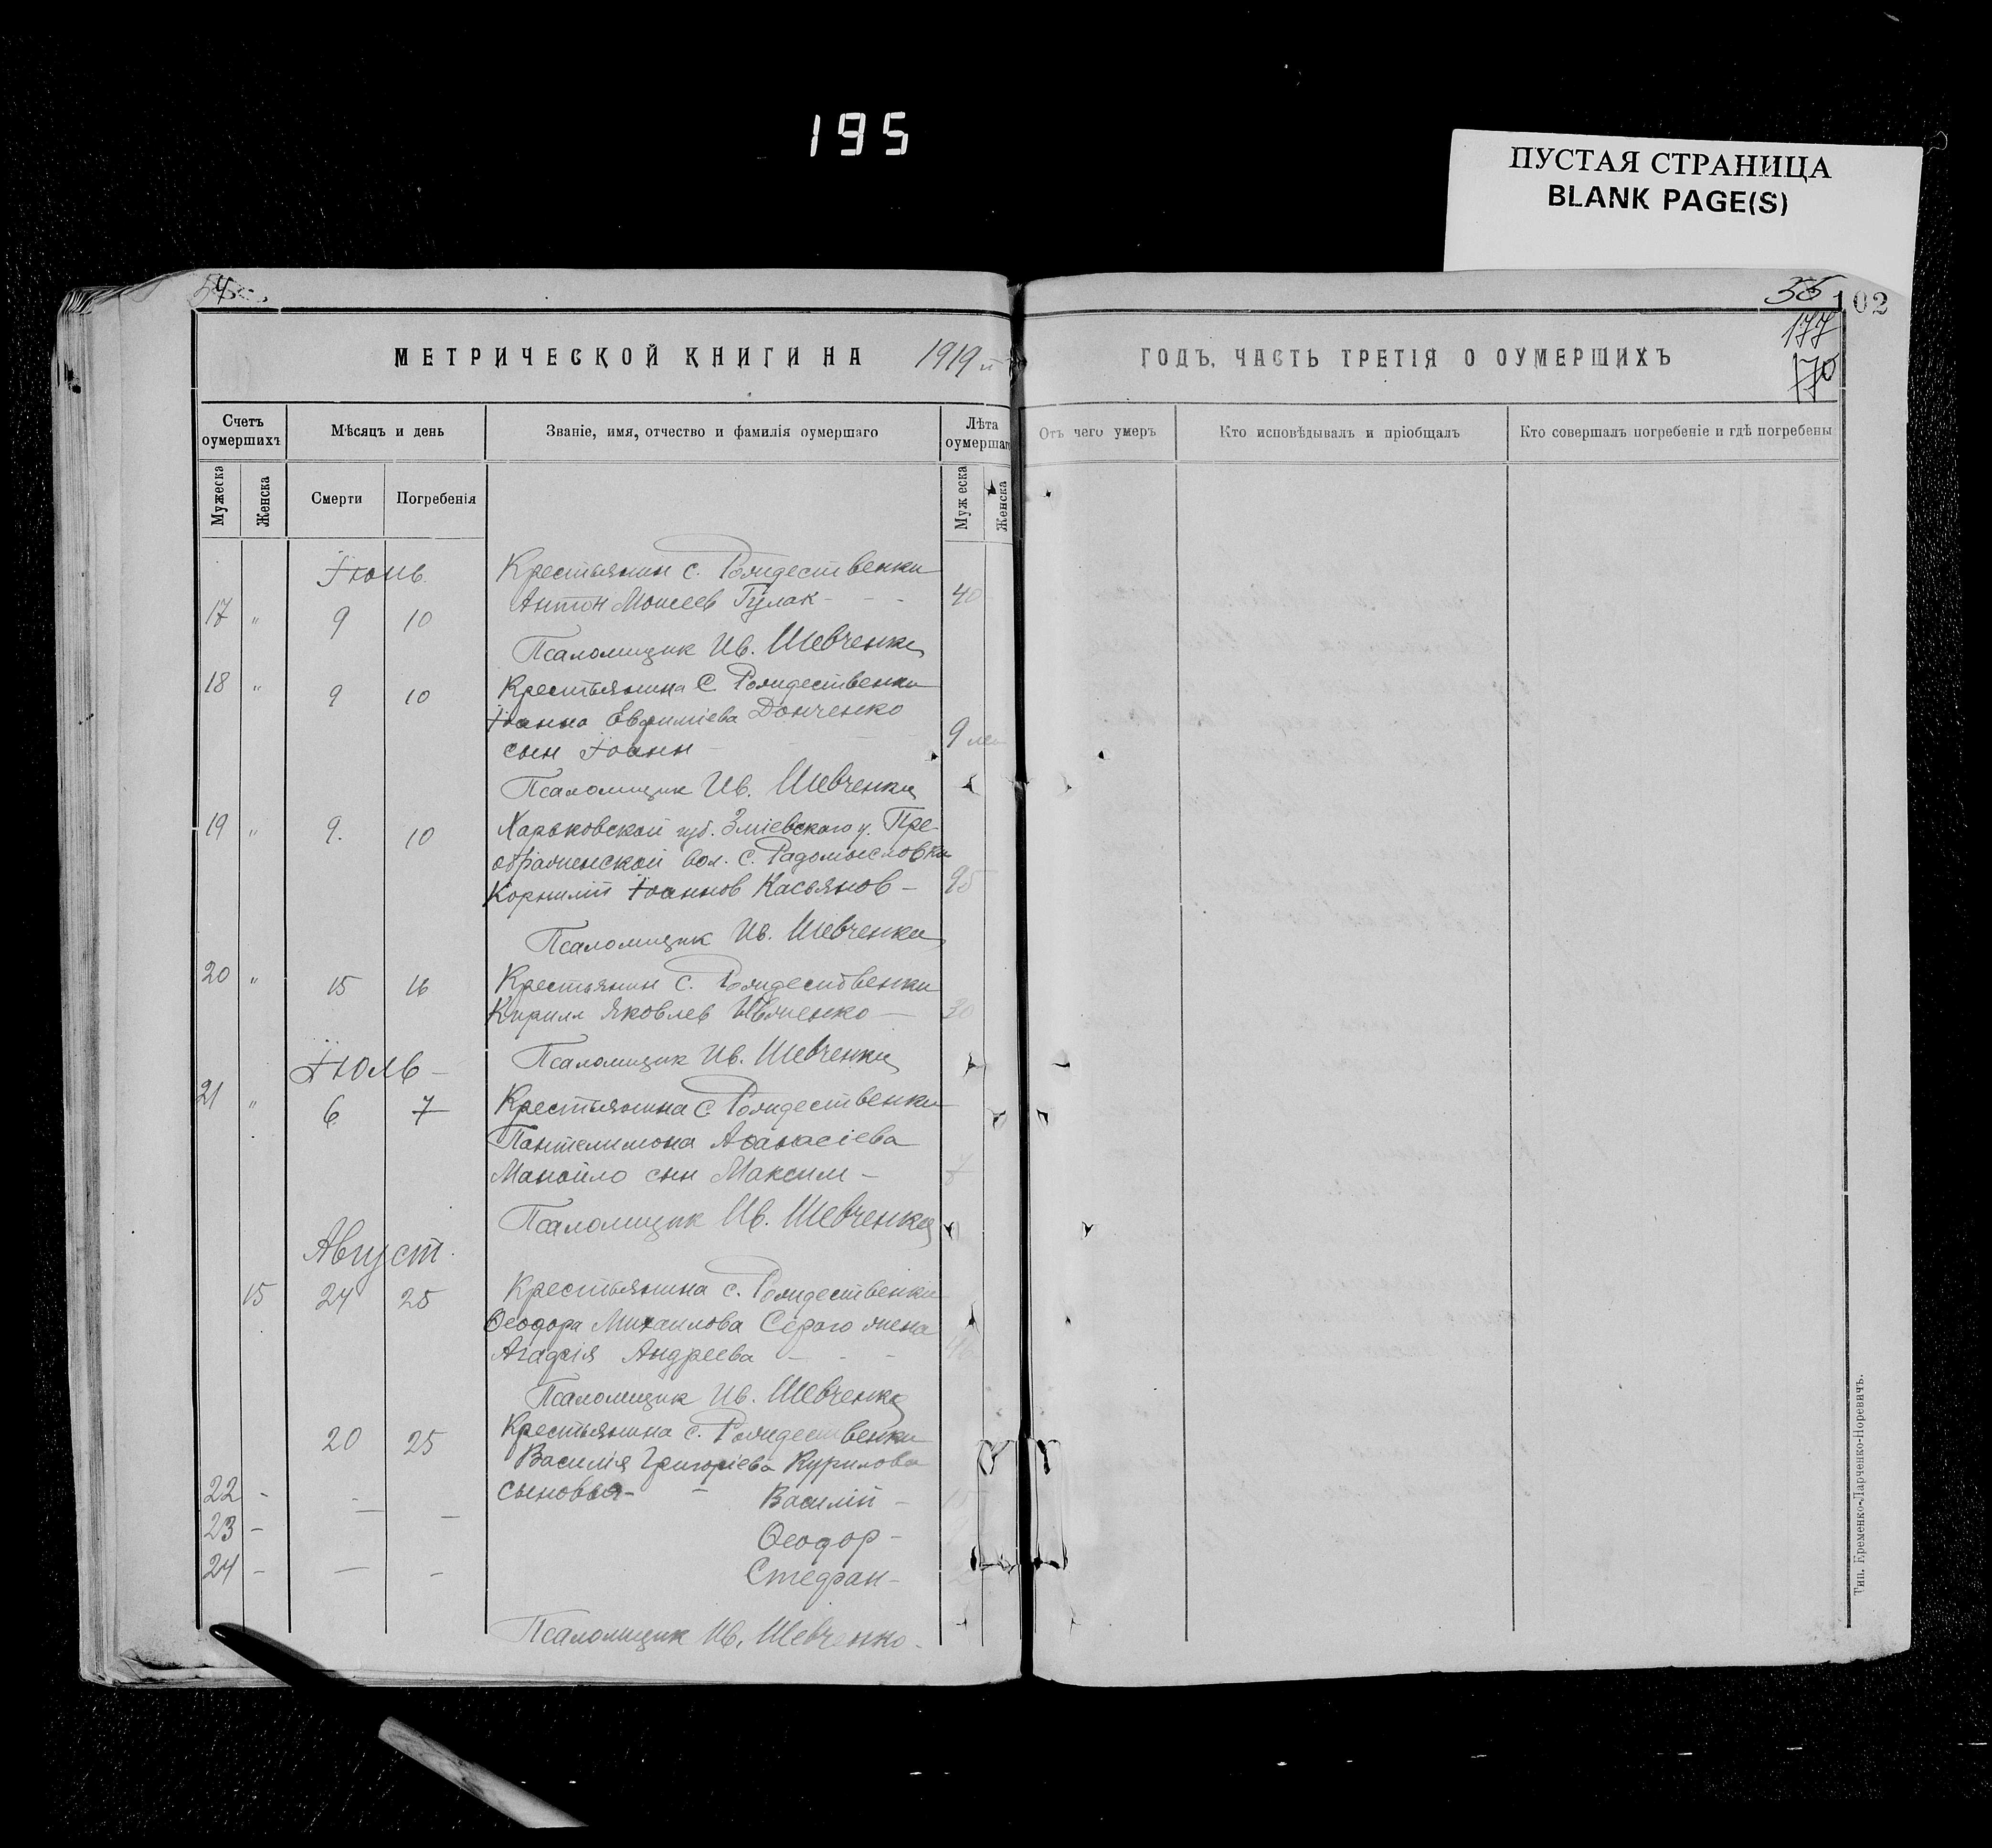 195
ПУСТАЯ СТРАНИЦА
BLANK PAGE(S)
54
55
102
177
170
МЕТРИЧЕСКОЙ КНИГИ НА 1919 й
ГОДЪ, ЧАСТЬ ТРЕТІЯ О ОУМЕРШИХЪ
Счетъ оумершихъ
Мѣсяцъ и день
Званіе, имя, отчество и фамилія оумершаго
Лѣта оумершаго
Отъ чего умеръ
Кто исповѣдывалъ и пріобщалъ
Кто совершалъ погребеніе и гдѣ погребены
Мужеска
Женска
Смерти
Погребенія
Муж еска
Женска
Іюнь. Крестьянин с. Рождественки
17 " 9 10 Антон Моисеев Гулак - - - 40
Псаломщик Ив. Шевченко
18 " 9 10 Крестьянина с. Рождественки
Іоанна Евфиміева Донченко
сын Іоанн - 9 лет
Псаломщик Ив. Шевченко
19 " 9. 10 Харьковской губ. Зміевского у. Пре-
ображенской вол. с. Радомысловки
Корнилій Іоаннов Касьянов - 95
Псаломщик Ив. Шевченко
20 " 15 16 Крестьянин с. Рождественки
Кирилл Яковлев Ивженко - 30
Іюль - Псаломщик Ив. Шевченко
21 " 6 7 Крестьянина с. Рождественки
Пантелимона Аѳанасіева
Манойло сын Максим - 7
Псаломщик Ив. Шевченко
Август.
15 24 25 Крестьянина с. Рождественки
Ѳеодора Михаилова Серого жена
Агафія Андреева - - -
Псаломщик Ив. Шевченко
20 25 Крестьянина с. Рождественки
Василія Григоріева Курилова
22 - - - сыновья - - Василій -
23 - Ѳеодор -
24 - - - Стефан -
Псаломщик Ив. Шевченко.
Тип. Еременко-Ларченко-Норевичъ.